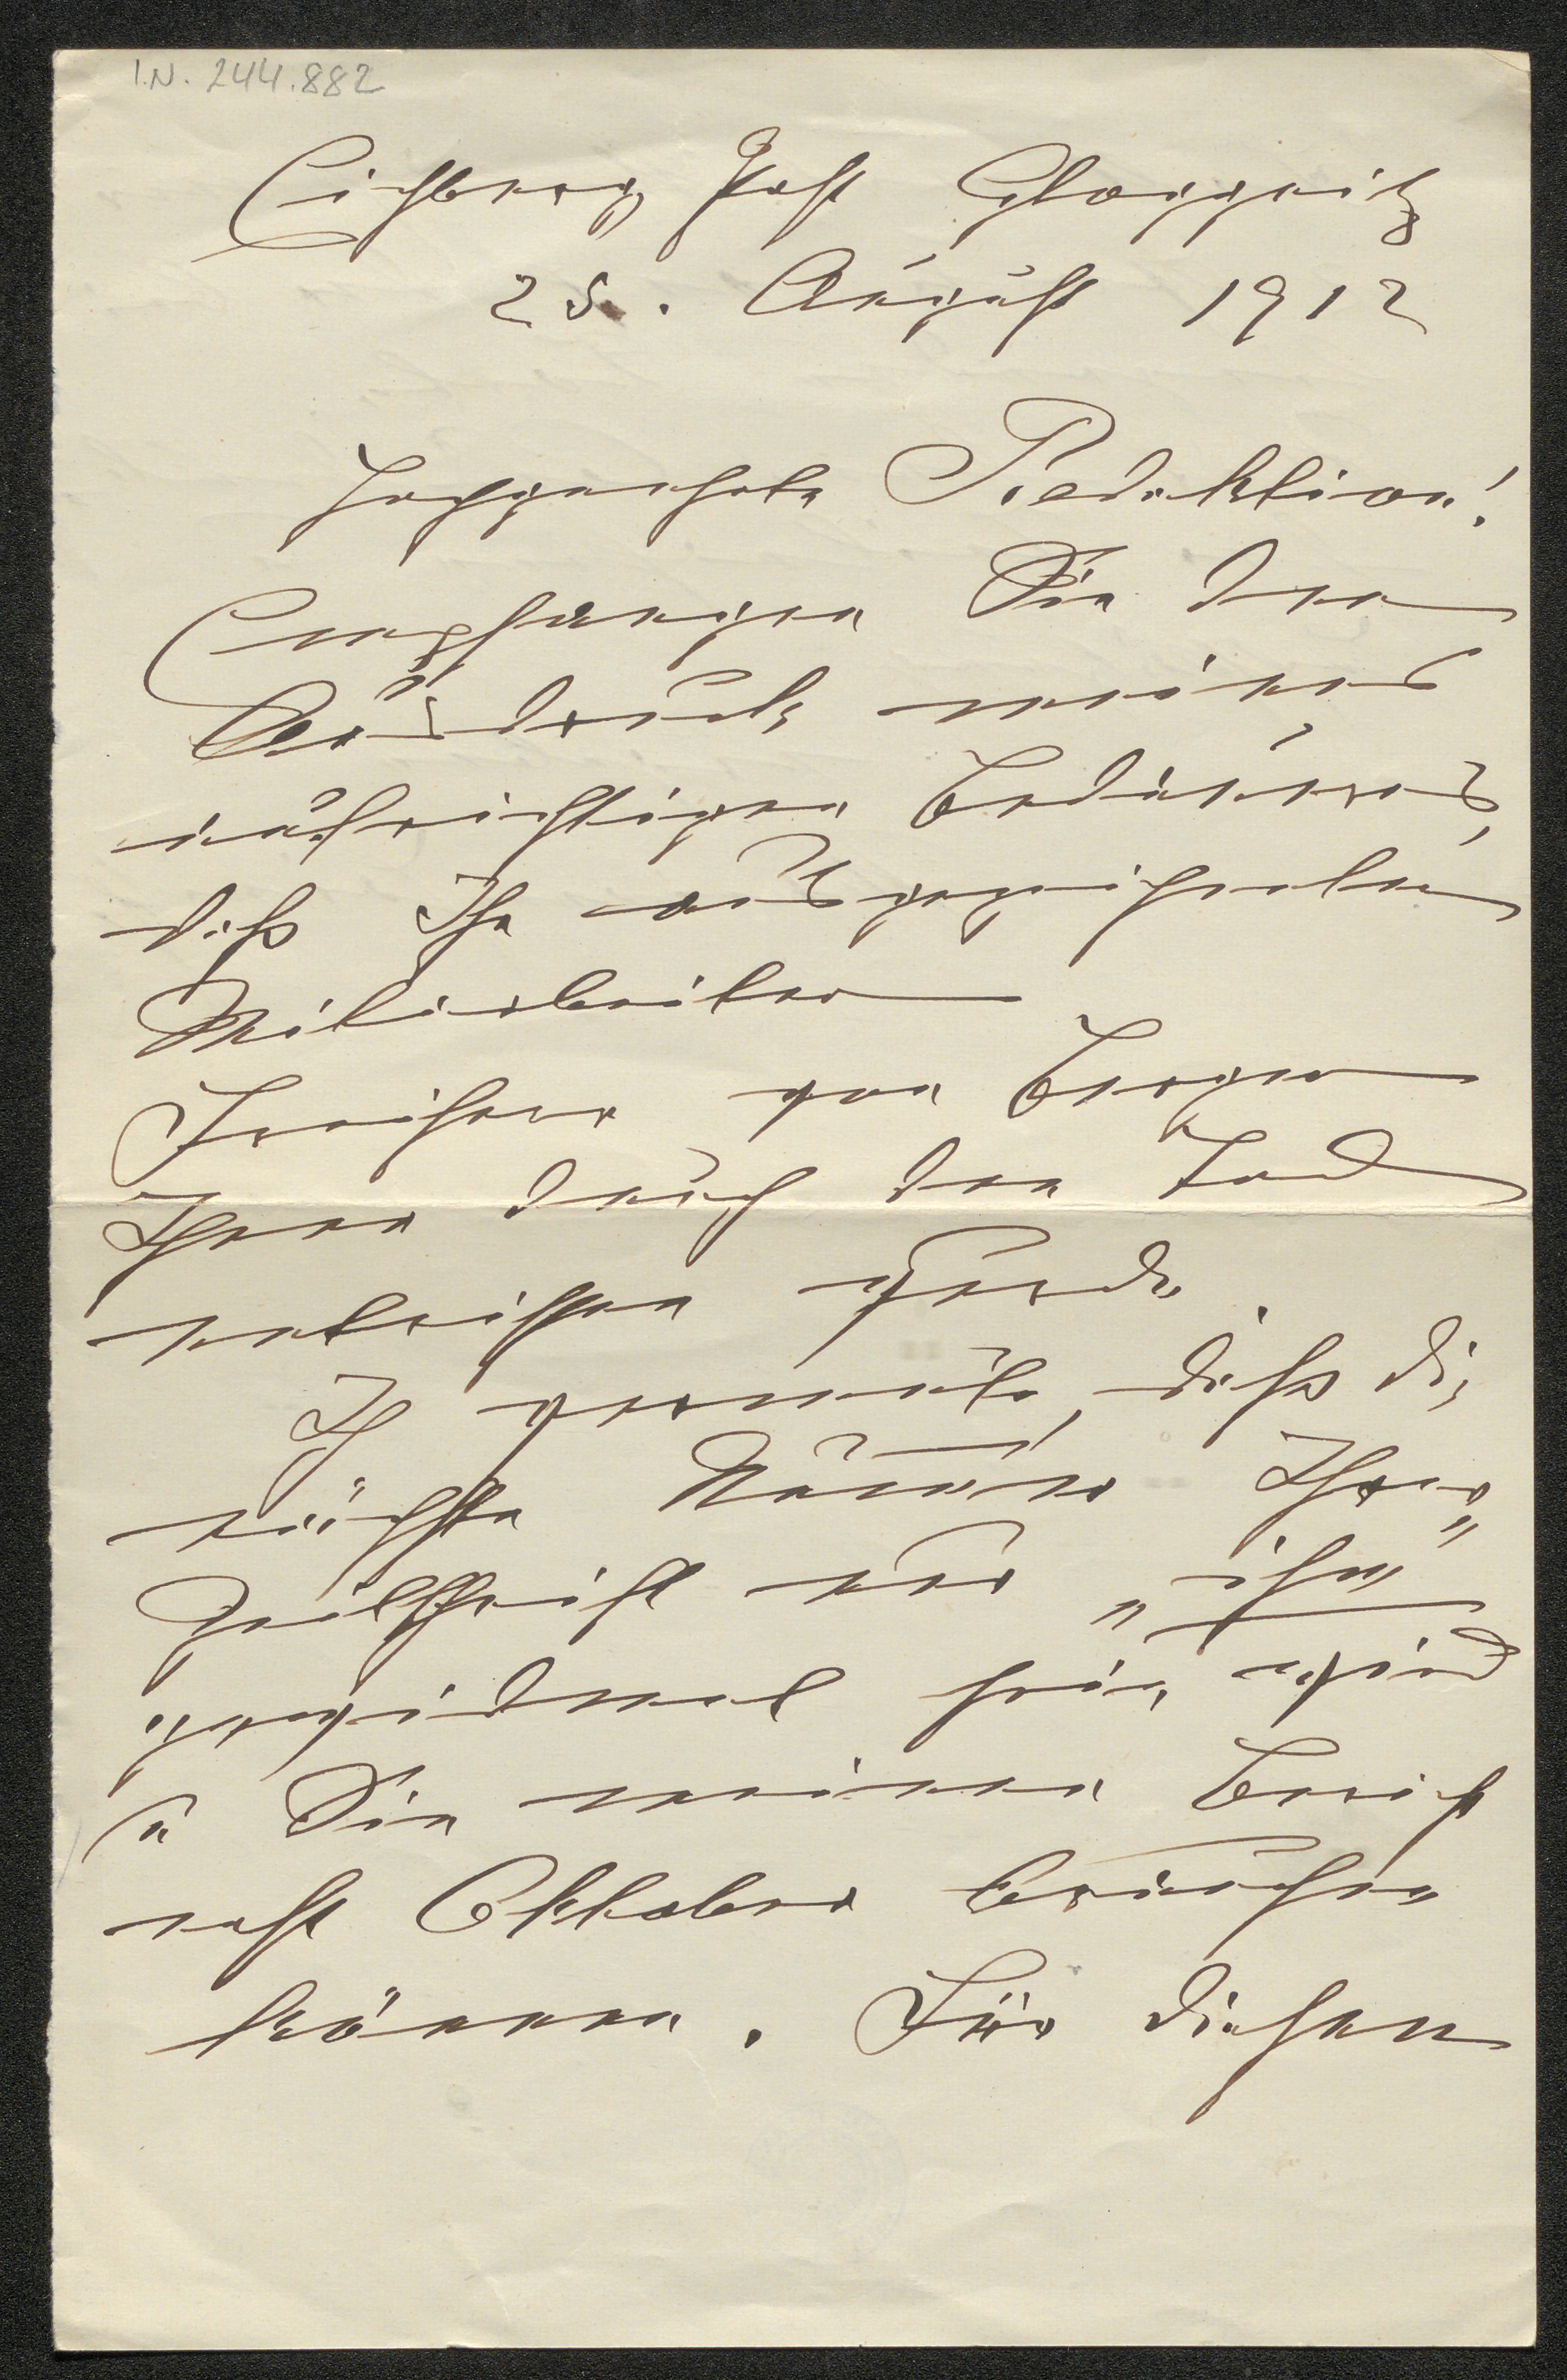 I.N. 244.882
Eichberg Post Gloggnitz
25. August 1912
Hochgeehrte Redaktion!
Empfangen Sie den
Ausdruck meines
aufrichtigen Bedauerns,
daß Ihr ausgezeichneter
Mitarbeiter
Freiherr von Berger
Ihnen durch den Tod
entrissen wurde.
Ich vermute, daß die
nächste Nummer Ihrer
Zeitschrift nur „ihm"
gewidmet sein wird
u Sie meinen Bericht
erst Oktober brauchen
können. Für diesen